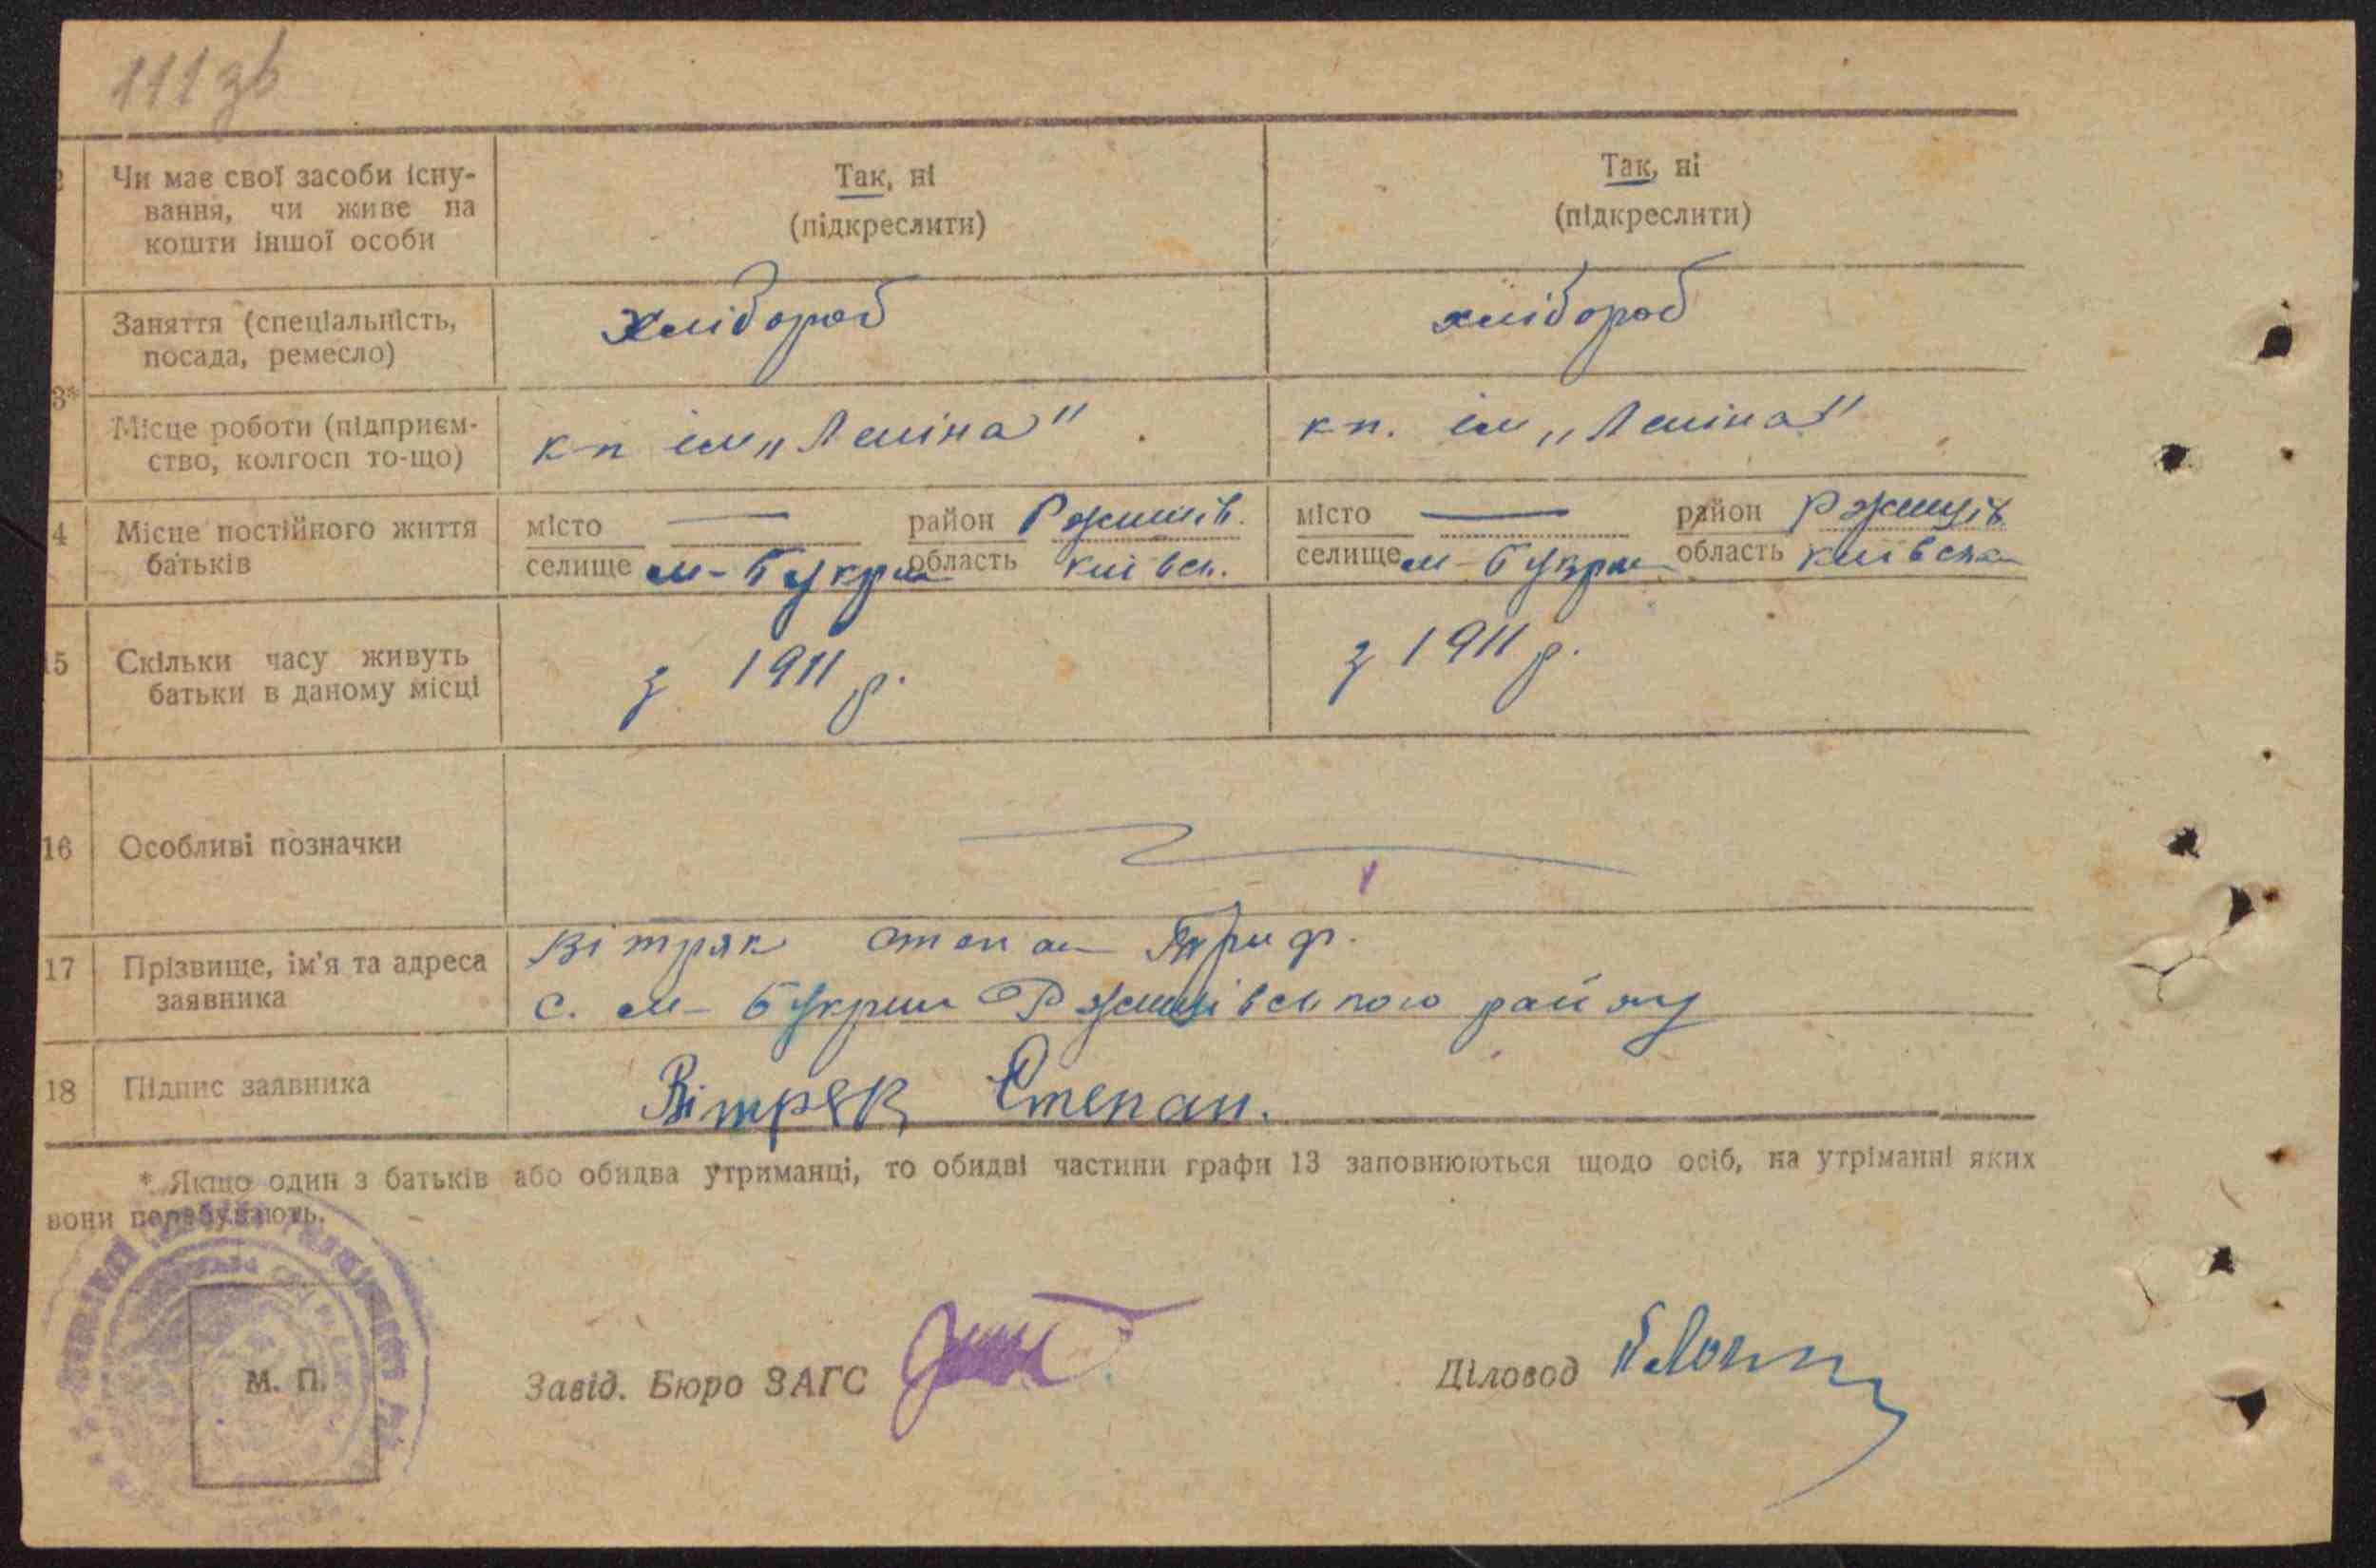 111 зв
Чи має свої засоби існу-
вання, чи живе на
кошти іншої особи
Так, ні
(підкреслити)
Так, ні
(підкреслити)
3*
Заняття (спеціальність,
посада, ремесло)
Хлібороб
хлібороб
Місце роботи (підприєм-
ство, колгосп то-що)
кп ім „Леніна"
кп. ім „Леніна"
4 Місце постійного життя
батьків
місто — район Ржищів.
селище м-Букрин область Київськ.
місто — район Ржищів
селище м-Букрин область Київська
15 Скільки часу живуть
батьки в даному місці
з 1911 р.
з 1911 р.
16 Особливі позначки
17 Прізвище, ім'я та адреса
заявника
Вітряк Степан Триф.
с. м-Букрин Ржищівського району
18 Підпис заявника
Вітряк Степан.
* Якщо один з батьків або обидва утриманці, то обидві частини графи 13 заповнюються щодо осіб, на утріманні яких
вони перебувають.
М. П.
Завід. Бюро ЗАГС
Діловод